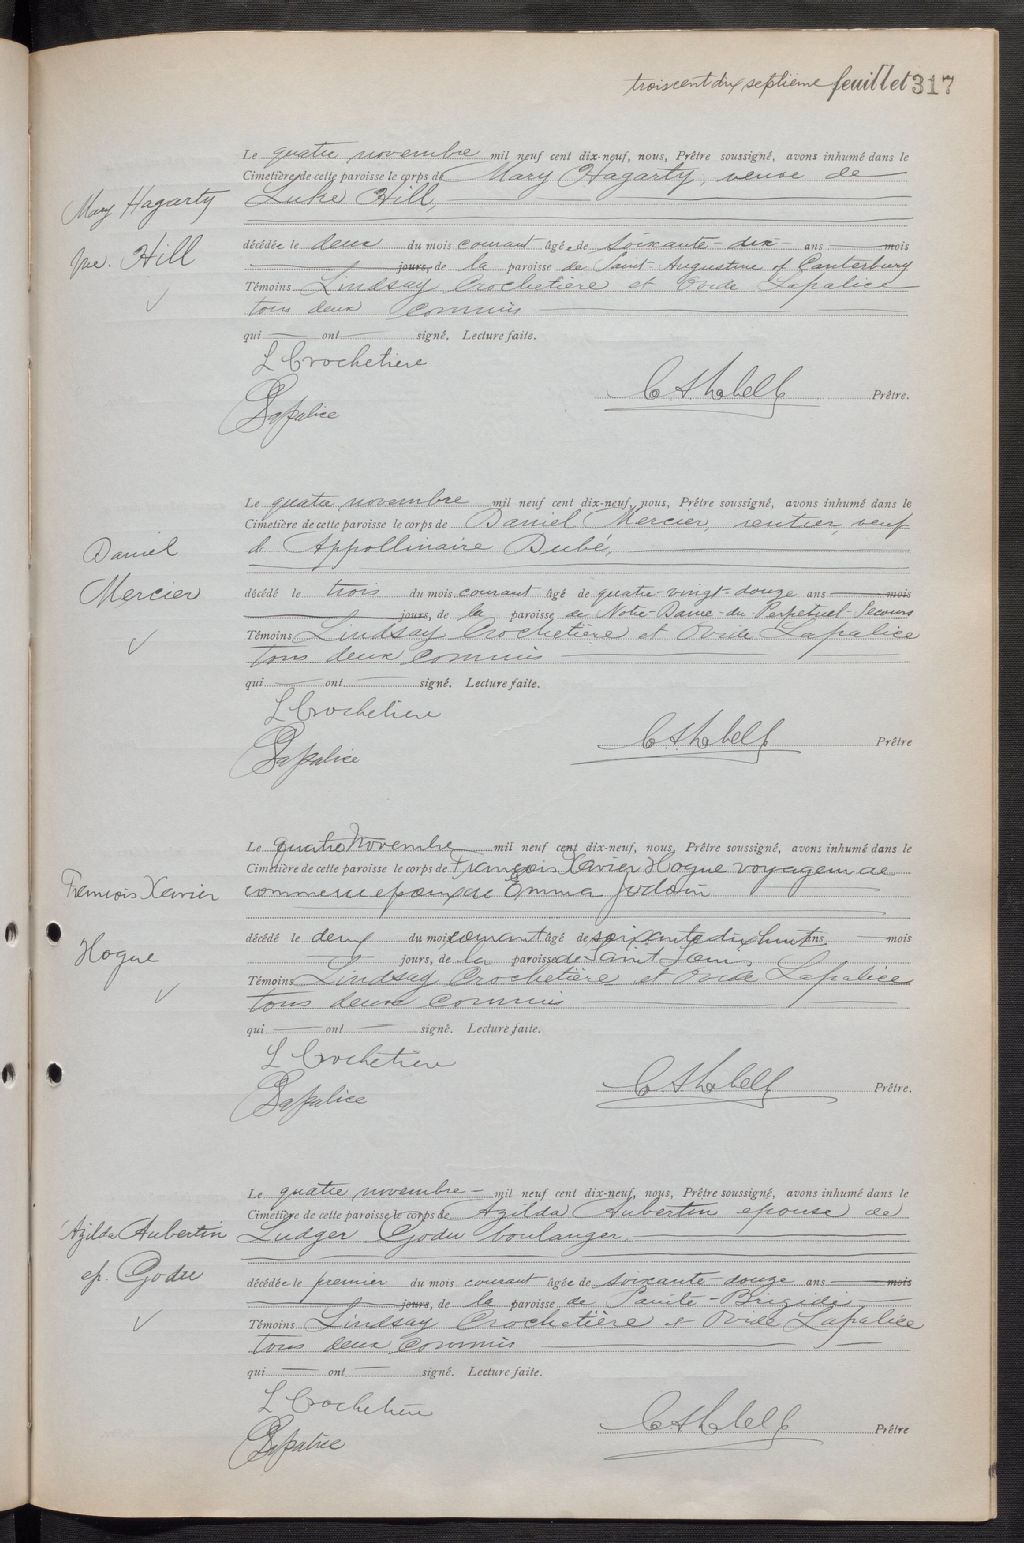 troiscent dix septième feuillet 317
Le quatre novembre mil neuf cent dix-neuf, nous, Prêtre soussigné, avons inhumé dans le
Cimetière de cette paroisse le corps de Mary Hagarty, veuve de
Luke Hill,
Mary Hagarty
Vve. Hill
décédée le deux du mois courant âgée de soixante-dix ans mois
jours, de la paroisse de Saint Augustine of Canterbury
Témoins Lindsay Crochetière et Ovide Lapalice
tous deux commis
qui ont signé. Lecture faite.
L Crochetiere
Lapalice
Prêtre.
Le quatre novembre mil neuf cent dix-neuf, nous, Prêtre soussigné, avons inhumé dans le
Cimetière de cette paroisse le corps de Daniel Mercier, rentier, veuf
d'Appollinaire Dubé,
Daniel
Mercier
décédé le trois du mois courant âgé de quatre-vingt-douze ans mois
jours, de la paroisse de Notre-Dame-du Perpétuel-Secours
Témoins Lindsay Crochetière et Ovide Lapalice
tous deux commis
qui ont signé. Lecture faite.
L Crochetiere
Lapalice
Prêtre
Le quatre Novembre mil neuf cent dix-neuf, nous, Prêtre soussigné, avons inhumé dans le
Cimetière de cette paroisse le corps de François Xavier Hogue voyageur de
commerce epoux de Emma Jodoin
Francois Xavier
Hogue
décédé le deux du mois courant âgé de soixante dix huit ans, mois
jours, de la paroisse de Saint Louis
Témoins Lindsay Crochetière et Ovide Lapalice
tous deux commis
qui ont signé. Lecture faite.
L Crochetiere
Lapalice
Prêtre.
Le quatre novembre mil neuf cent dix-neuf, nous, Prêtre soussigné, avons inhumé dans le
Cimetière de cette paroisse le corps de Azilda Aubertin epouse de
Ludger Godu boulanger.
Azilda Aubertin
ep. Godu
décédée le premier du mois courant âgée de soixante-douze ans mois
jours, de la paroisse de Sainte-Brigide
Témoins Lindsay Crochetière et Ovide Lapalice
tous deux commis
qui ont signé. Lecture faite.
L Crochetiere
Lapalice
Prêtre